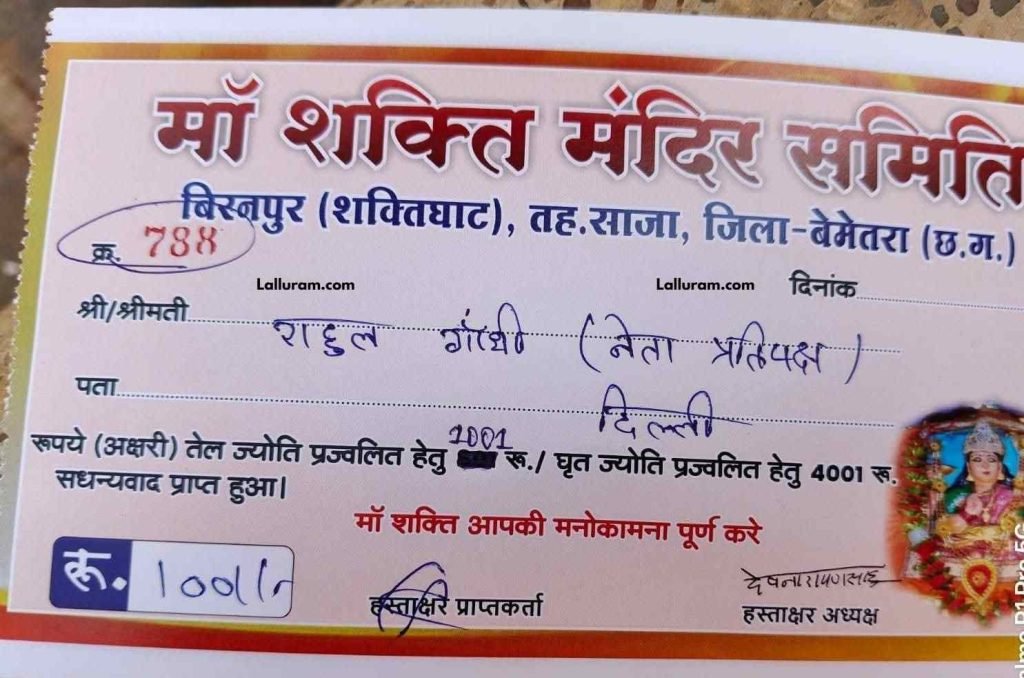 माँ शक्ति मंदिर समिति
बिस्नपुर (शक्तिघाट), तह.साजा, जिला-बेमेतरा (छ.ग.)
क्र. 788
Lalluram.com Lalluram.com
दिनांक
श्री/श्रीमती राहुल गांधी (नेता प्रतिपक्ष)
पता दिल्ली
रूपये (अक्षरी) तेल ज्योति प्रज्वलित हेतु 1001 रू./ घृत ज्योति प्रज्वलित हेतु 4001 रू.
सधन्यवाद प्राप्त हुआ।
माँ शक्ति आपकी मनोकामना पूर्ण करे
रू. 1001/-
हस्ताक्षर प्राप्तकर्ता
हस्ताक्षर अध्यक्ष
P1 Pro 5G